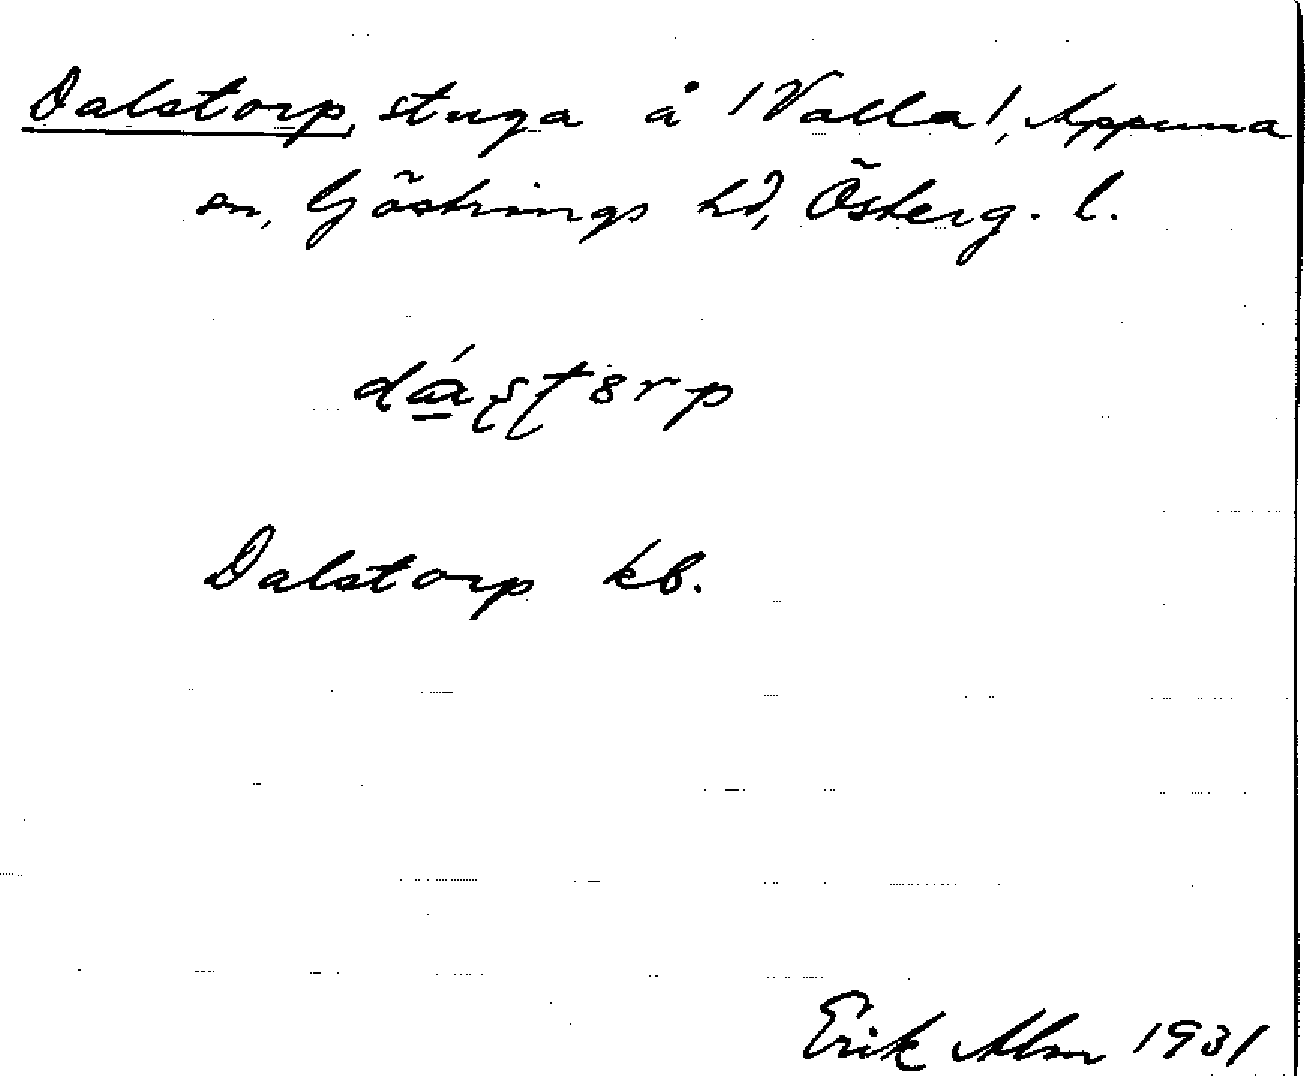 Dalstorp, stuga å /Valla/, Appuna
sn, Göstrings hd, Österg. l.
dáʂʈɤrp
Dalstorp kb.
Erik Alm 1931